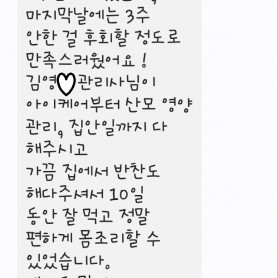 마지막날에는 3주
안한 걸 후회할 정도로
만족스러웠어요!
김영♡관리사님이
아이케어부터 산모 영양
관리, 집안일까지 다
해주시고
가끔 집에서 반찬도
해다주셔서 10일
동안 잘 먹고 정말
편하게 몸조리할 수
있었습니다.